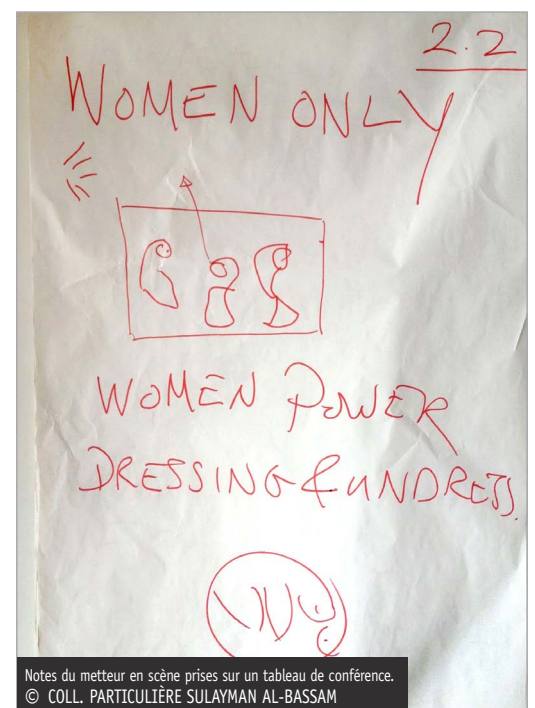 2.2
WOMEN ONLY
WOMEN POWER
DRESSING & UNDRESS.
Notes du metteur en scène prises sur un tableau de conférence.
© COLL. PARTICULIÈRE SULAYMAN AL-BASSAM